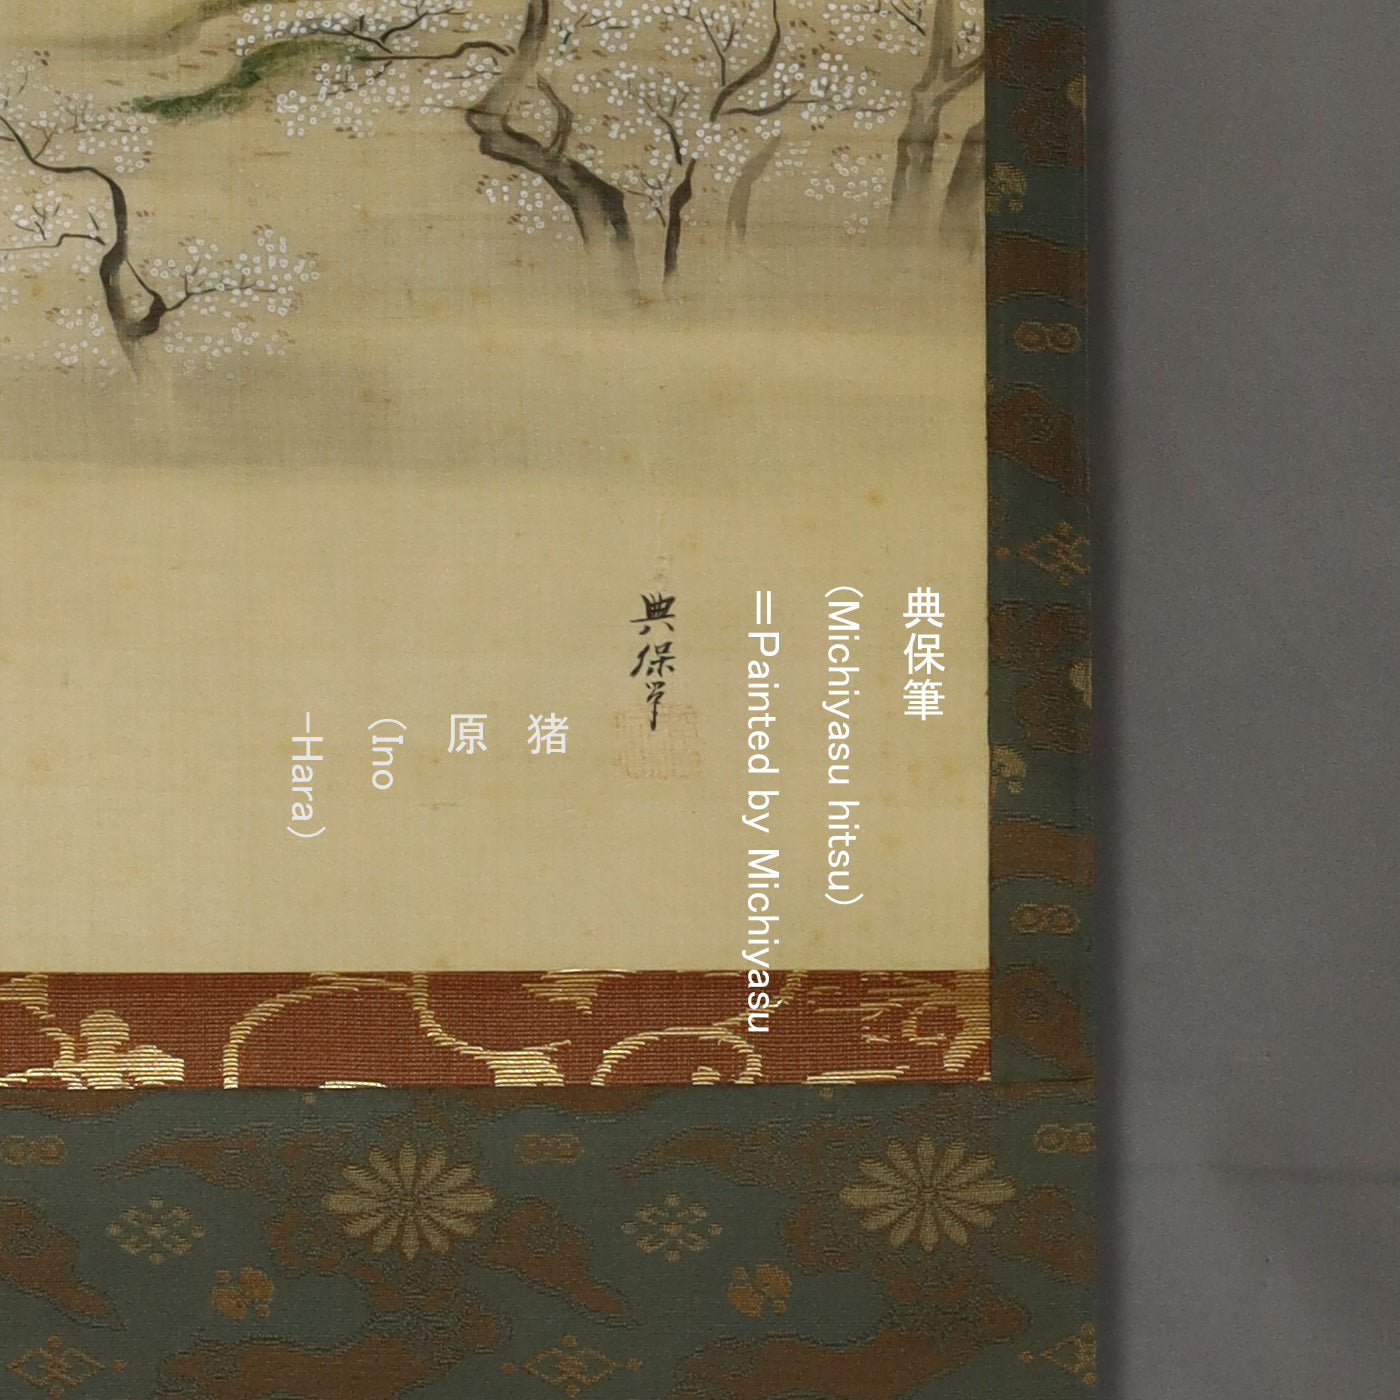 典保筆
(Michiyasu hitsu)
=Painted by Michiyasu
典保筆
猪
原
(Ino
-Hara)